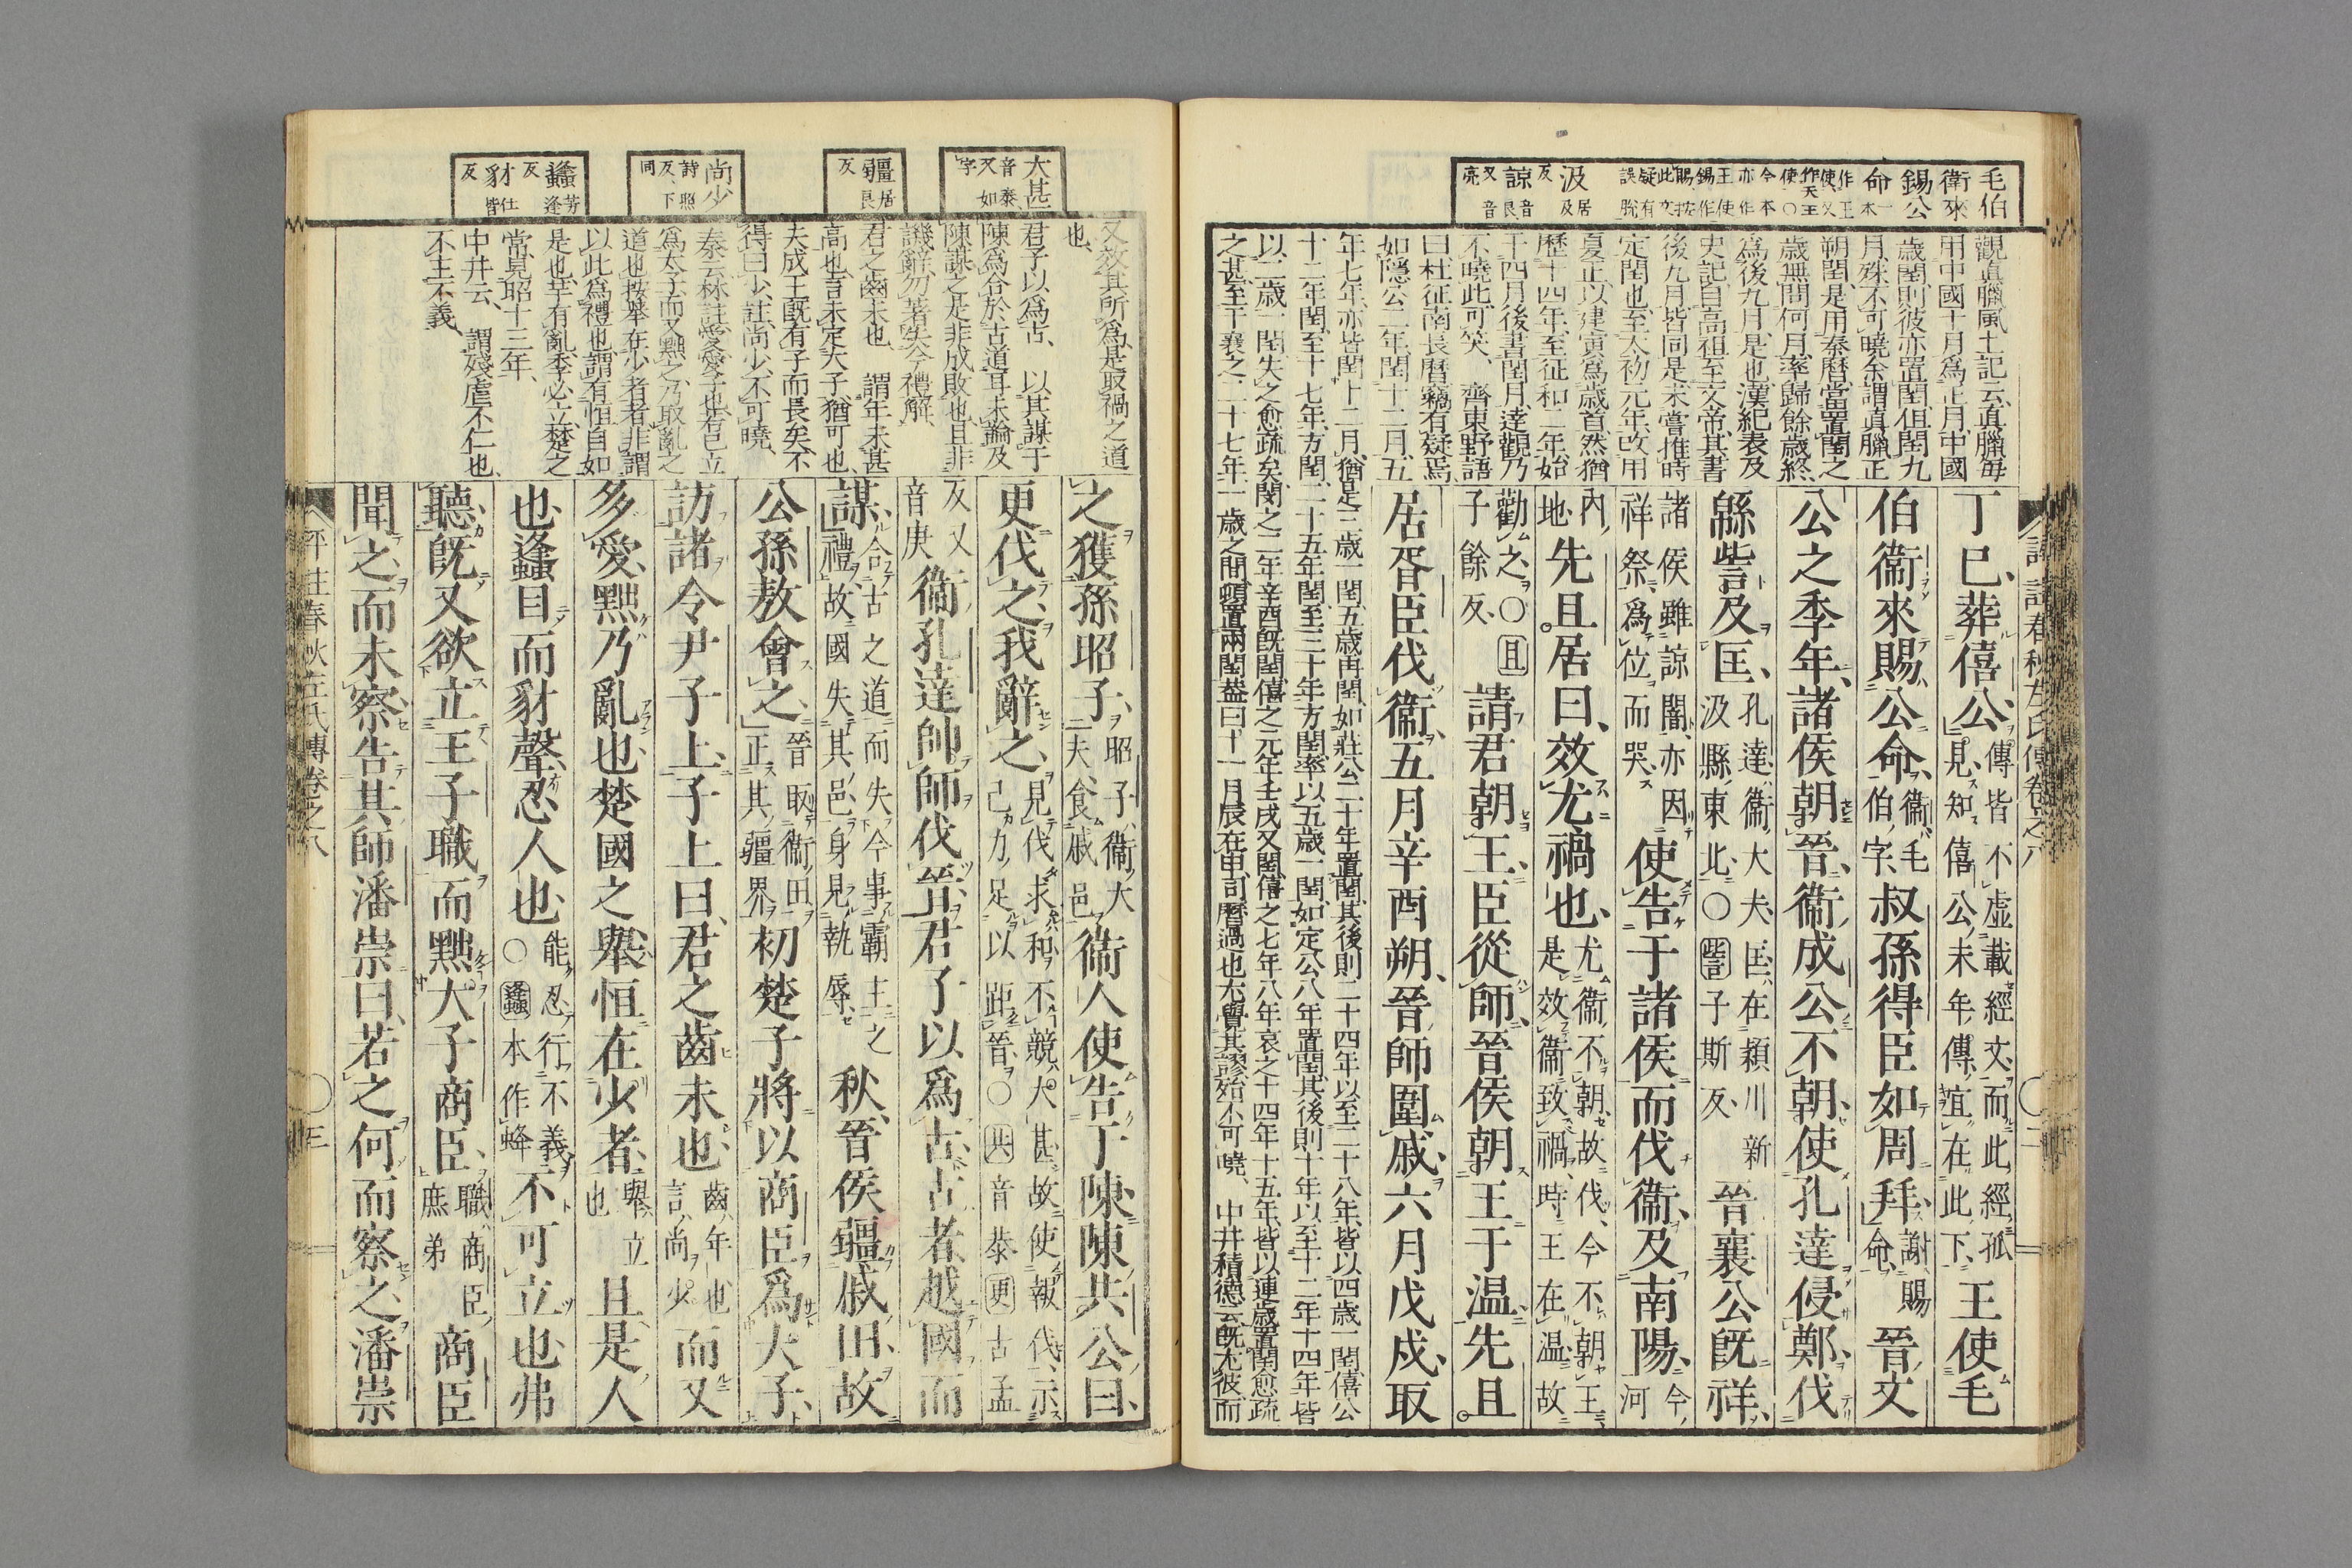 毛伯
衛來
錫公
命
汲居及反
諒音良又音亮
觀眞臘風土記云眞臘毎
用中國十月爲正月中國
歲閏則彼亦置閏但閏九
月殊不可曉余謂眞臘正
朔閏是用秦曆當置閏之
歲無問何月率歸餘歲終
爲後九月是也漢紀表及
史記自高祖至文帝其書
後九月皆同是未嘗推時
定閏也至太初元年改用
夏正以建寅爲歲首然猶
歷十四年至征和二年始
于四月後書閏月達觀乃
不曉此可笑 齊東野語
曰杜征南長曆竊有疑焉
如隱公二年閏十二月五
年七年亦皆閏十二月猶是三歲一閏五歲再閏如莊公二十年置閏其後則二十四年以至二十八年皆以四歲一閏僖公
十二年閏至十七年方閏二十五年閏至三十年方閏率以五歲一閏如定公八年置閏其後則十年以至十二年十四年皆
以二歲一閏失之愈疏矣閔之二年辛酉既閏僖之元年壬戌又閏僖之七年八年哀之十四年十五年皆以連歲置閏愈疏
之甚至于襄之二十七年一歲之間頓置兩閏蓋曰十一月辰在申司曆過也尤覺其謬殆不可曉 中井積德云既尤彼而
丁巳葬僖公傳皆不虛載經文而此經孤見知僖公未年傳誼在此下王使毛
伯衞來賜公命衞毛伯字叔孫得臣如周拜命謝賜晉文
公之季年諸侯朝晉衞成公不朝使孔達侵鄭伐
緜訾及匡孔達衞大夫匡在潁川新汲縣東北〇訾子斯反晉襄公既祥
諸侯雖諒闇亦因祥祭爲位而哭使告于諸侯而伐衞及南陽今河
內地先且居曰效尤禍也尤衞不朝故伐今不朝王是效衞致禍時王在温故
勸之〇且子餘反請君朝王臣從師晉侯朝王于温先且
居胥臣伐衞五月辛酉朔晉師圍戚六月戊戌取
大甚音泰又如字
疆居良反
尚少詩照反下同
蠭芳逢反
豺仕皆反
又效其所爲是取禍之道
也
君子以爲古 以其謀于
陳爲合於古道耳未論及
陳謀之是非成敗也且非
譏辭勿著失今禮解
君之齒未也 謂年未甚
高也言未定大子猶可也
夫成王既有子而長矣不
得曰少註尚少不可曉
秦云林註愛愛子也若已立
爲太子而又黜之乃取亂之
道也按舉在少者者非謂
以此爲禮也謂有恒自如
是也芋有亂季必立楚之
常見昭十三年
中井云 謂殘虐不仁也
不主不義
之獲孫昭子昭子衞大夫食戚邑衞人使告于陳陳共公曰
更伐之我辭之見伐求和不競大甚故使報伐示己力足以距晉〇共音恭更古孟
反又音庚衞孔達帥師伐晉君子以爲古古者越國而
謀合古之道而失今事霸主之禮故國失其邑身見執辱秋晉侯疆戚田故
公孫敖會之晉取衞田正其疆界初楚子將以商臣爲大子
訪諸令尹子上子上曰君之齒未也齒年也言尚少而又
多愛黜乃亂也楚國之舉恒在少者舉立也且是人
也蠭目而豺聲忍人也能忍行不義〇蠭本作蜂不可立也弗
聽既又欲立王子職而黜大子商臣職商臣庶弟商臣
聞之而未察告其師潘崇曰若之何而察之潘崇